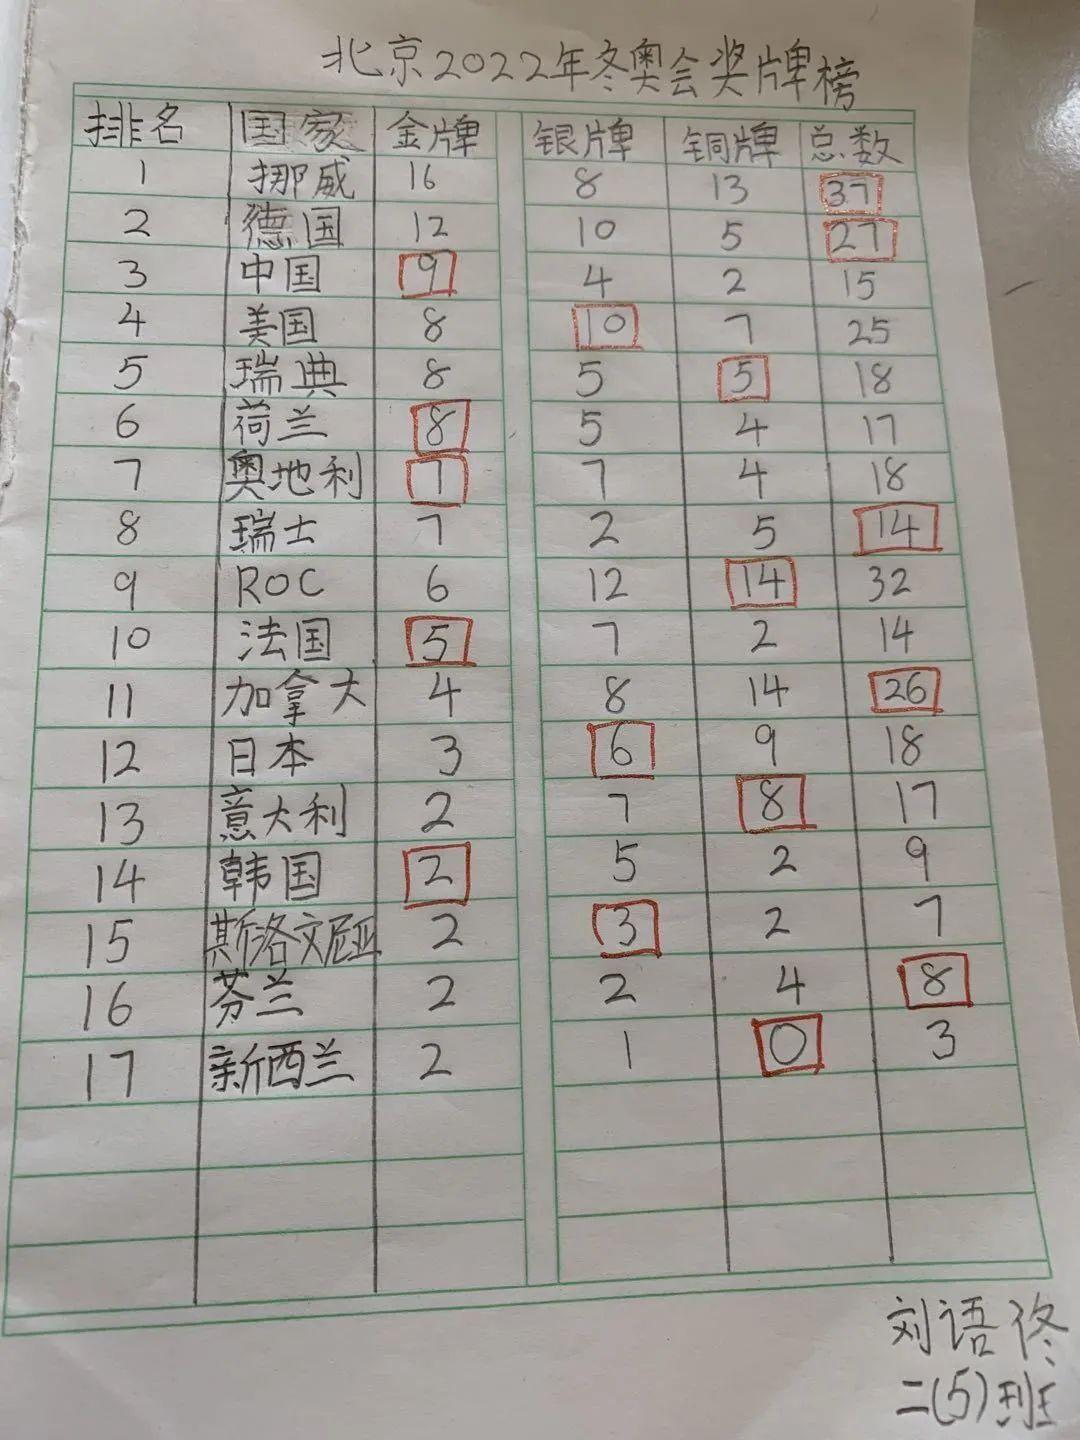 北京2022年冬奥会奖牌榜
排名 国家 金牌 银牌 铜牌 总数
1 挪威 16 8 13 37
2 德国 12 10 5 27
3 中国 9 4 2 15
4 美国 8 10 7 25
5 瑞典 8 5 5 18
6 荷兰 8 5 4 17
7 奥地利 7 7 4 18
8 瑞士 7 2 5 14
9 ROC 6 12 14 32
10 法国 5 7 2 14
11 加拿大 4 8 14 26
12 日本 3 6 9 18
13 意大利 2 7 8 17
14 韩国 2 5 2 9
15 斯洛文尼亚 2 3 2 7
16 芬兰 2 2 4 8
17 新西兰 2 1 0 3
刘语佟
二(5)班